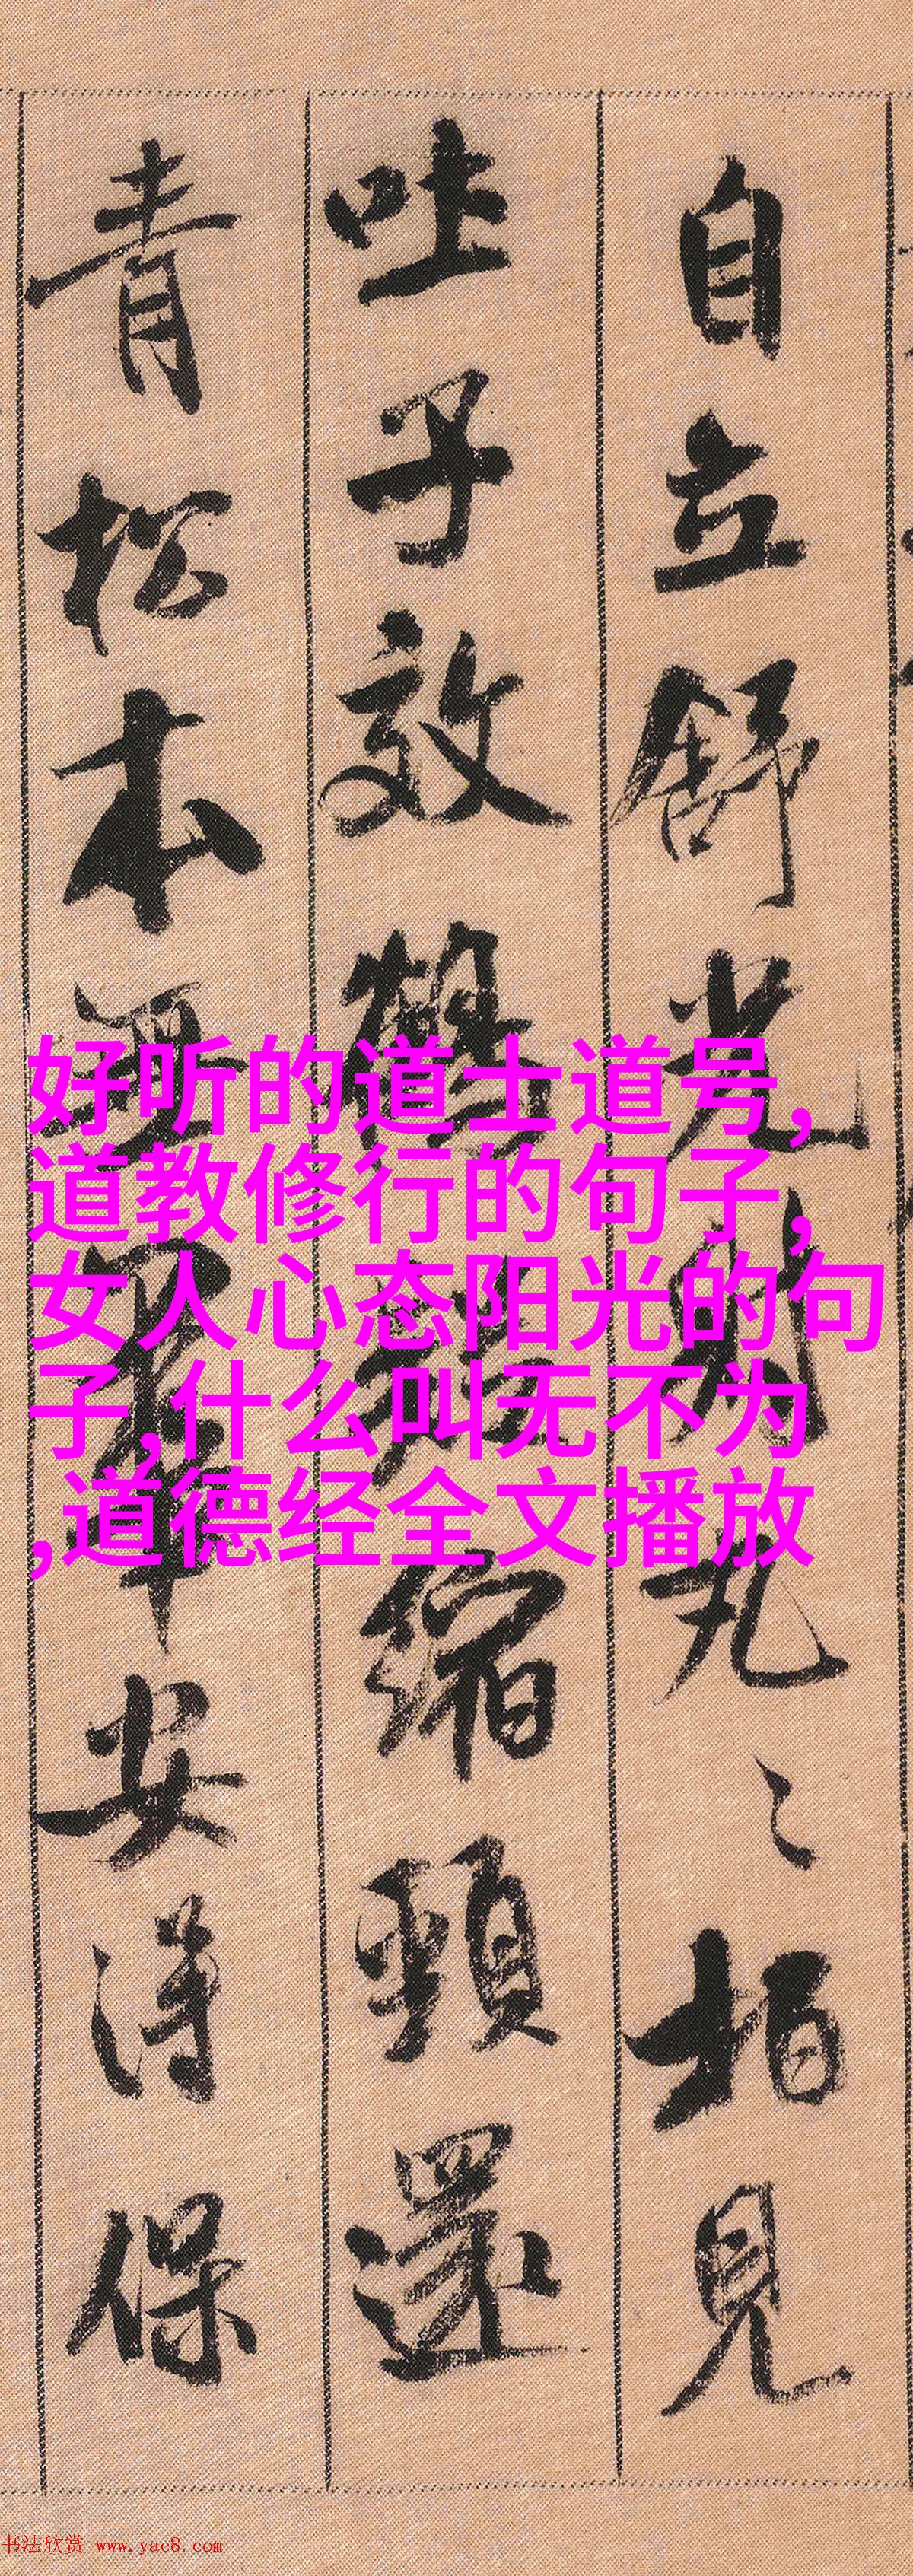 自立舒光射丸〻柏見
吐子效鶴疑縮頸還
青松本無華安得保
好听的道士道号,
道教修行的句子,
女人心态阳光的句
子,什么叫无不为
,道德经全文播放
书法欣赏 www.yac8.com